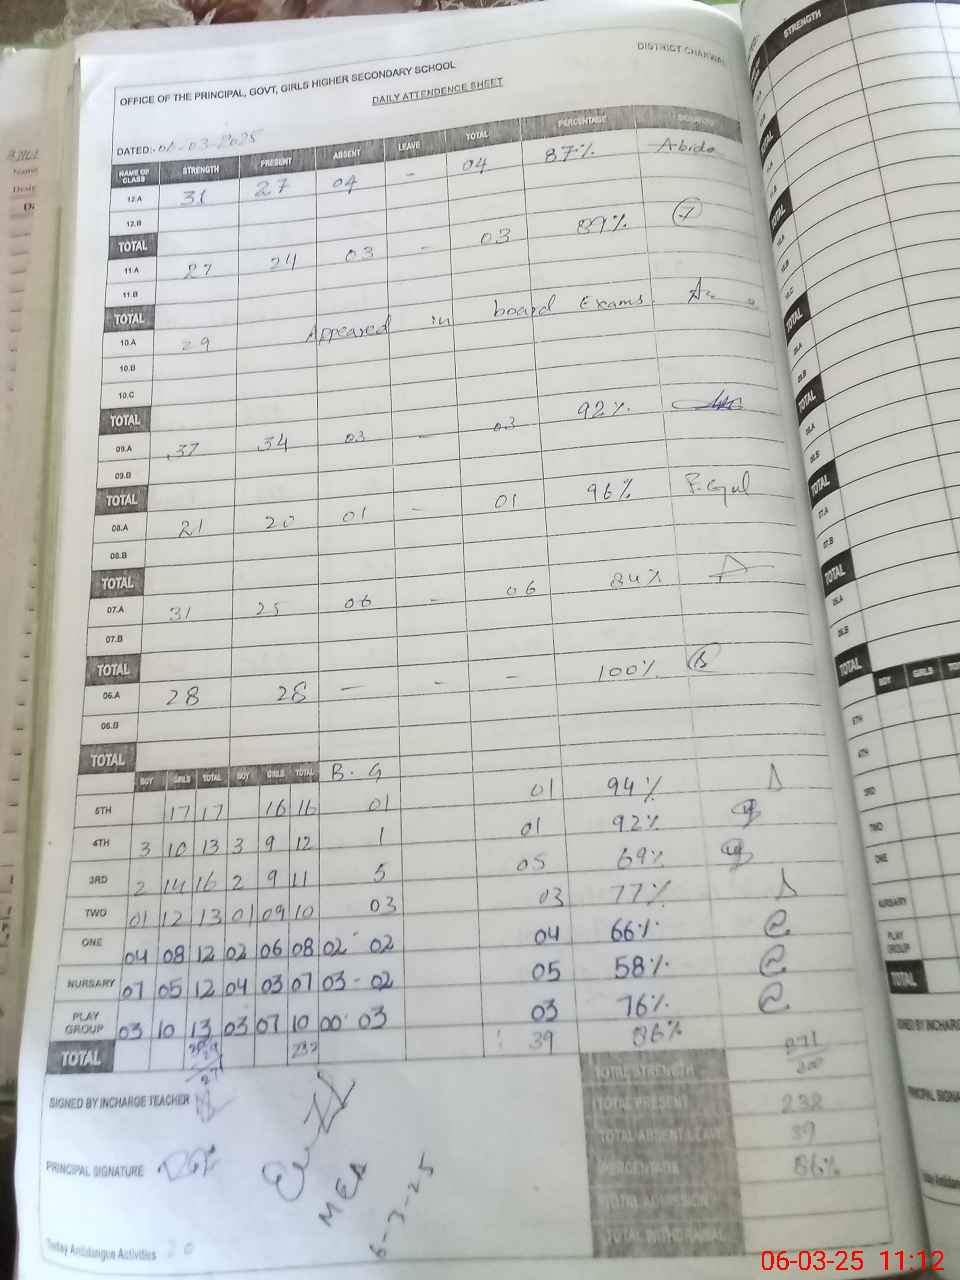 DISTRICT CHAKWAL
OFFICE OF THE PRINCIPAL, GOVT, GIRLS HIGHER SECONDARY SCHOOL
DAILY ATTENDENCE SHEET
DATED:- 06-03-2025
NAME OF CLASS STRENGTH PRESENT ABSENT LEAVE TOTAL PERCENTAGE SIGNATURE
12.A 31 27 04 - 04 87% Abida
12.B
TOTAL
11.A 27 24 03 - 03 89%
11.B
TOTAL
10.A 29 Appeared in board Exams.
10.B
10.C
TOTAL
09.A 37 34 03 - 03 92%
09.B
TOTAL
08.A 21 20 01 - 01 96%
08.B
TOTAL
07.A 31 25 06 - 06 84%
07.B
TOTAL
06.A 28 28 - - - 100%
06.B
TOTAL
BOY GIRLS TOTAL BOY GIRLS TOTAL B. G
5TH 17 17 16 16 01 01 94%
4TH 3 10 13 3 9 12 1 01 92%
3RD 2 14 16 2 9 11 5 05 69%
TWO 01 12 13 01 09 10 03 03 77%
ONE 04 08 12 02 06 08 02 - 02 04 66%
NURSARY 07 05 12 04 03 07 03 - 02 05 58%
PLAY GROUP 03 10 13 03 07 10 00 03 03 76%
TOTAL 232 39 86%
TOTAL STRENGTH 271
SIGNED BY INCHARGE TEACHER
TOTAL PRESENT 232
TOTAL ABSENT/LEAVE 39
PRINCIPAL SIGNATURE
PERCENTAGE 86%
MEA
6-3-25
TOTAL ADMISSION
TOTAL WITHDRAWAL
Today Antidangue Activities
STRENGTH
TOTAL
TOTAL
TOTAL
TOTAL
TOTAL
07.A
07.B
TOTAL
06.A
06.B
TOTAL
BOY GIRLS
5TH
4TH
3RD
TWO
ONE
NURSARY
PLAY GROUP
TOTAL
06-03-25 11:12